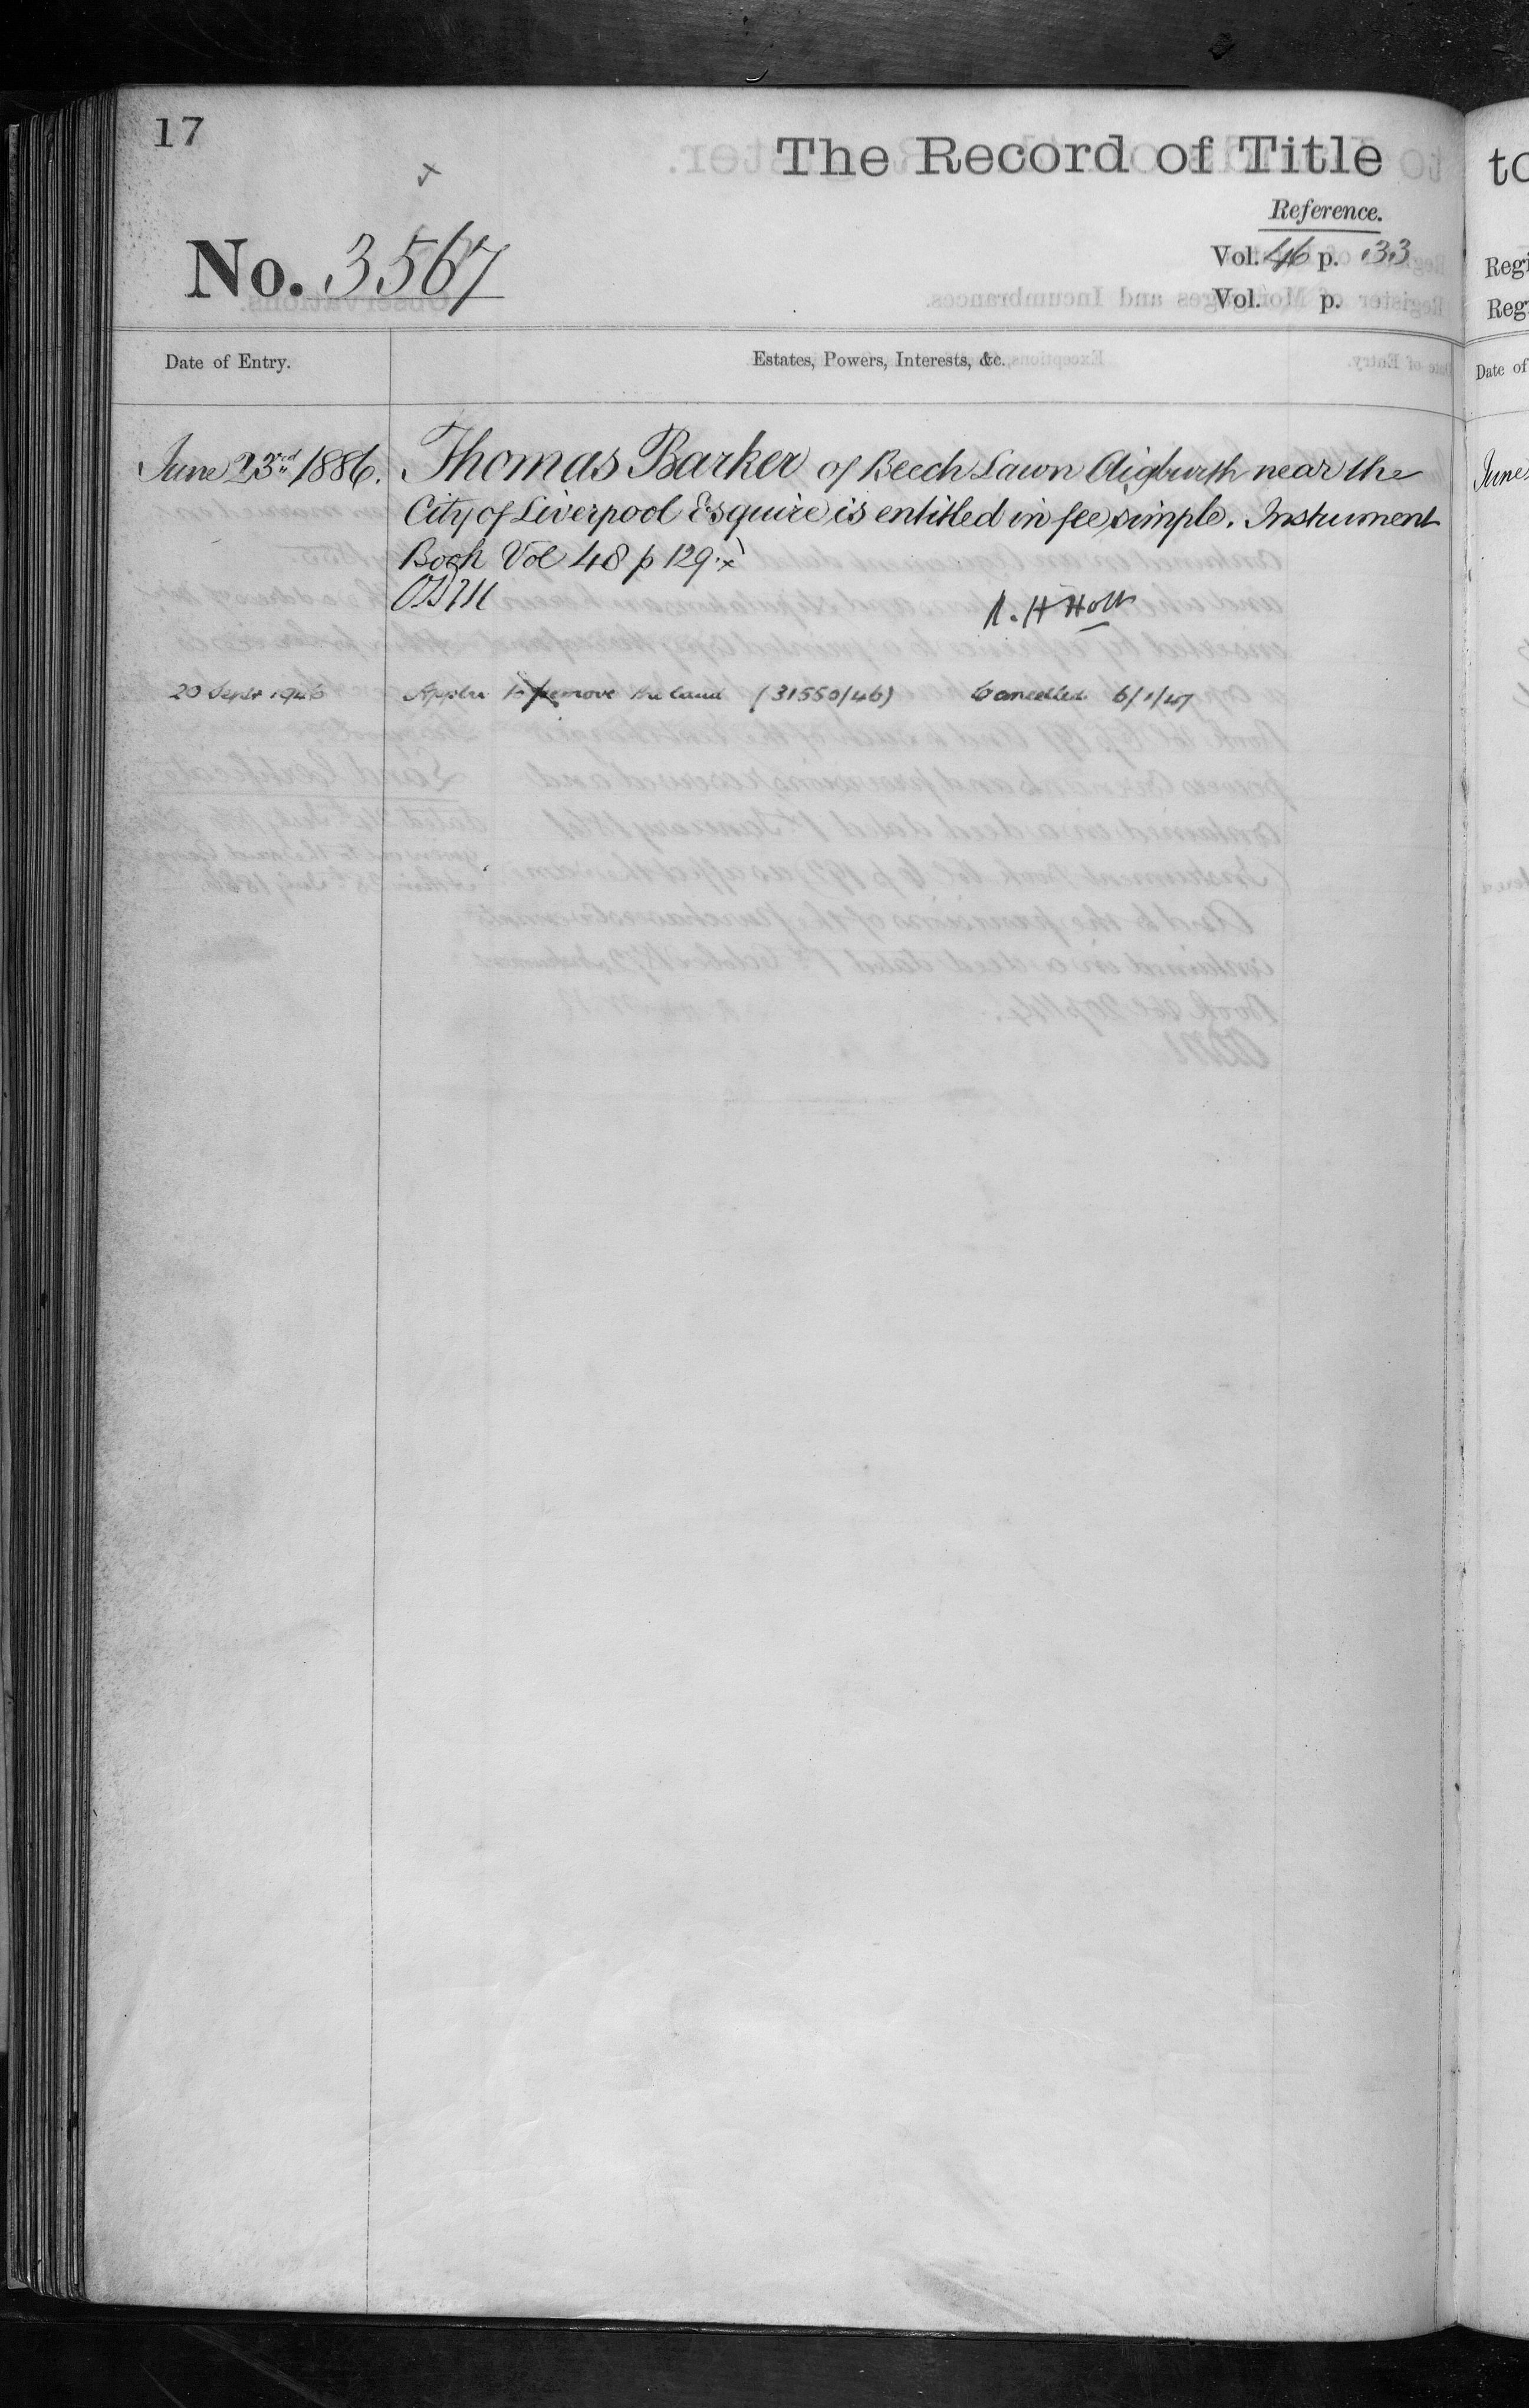 17
The Record of Title
Reference.
No. 3567
Vol. 46 p. 33
Vol. p.
Date of Entry.
Estates, Powers, Interests, &c.
June 23rd 1886. Thomas Barker of Beech Lawn Aigburth near the
City of Liverpool Esquire is entitled in fee simple. Instrument
Book Vol 48 p 129. x
R. H Holt
20 Septr 1946 Appln to remove the land (31550/46) Cancelled 6/1/47
to
Regi
Reg
Date of
June